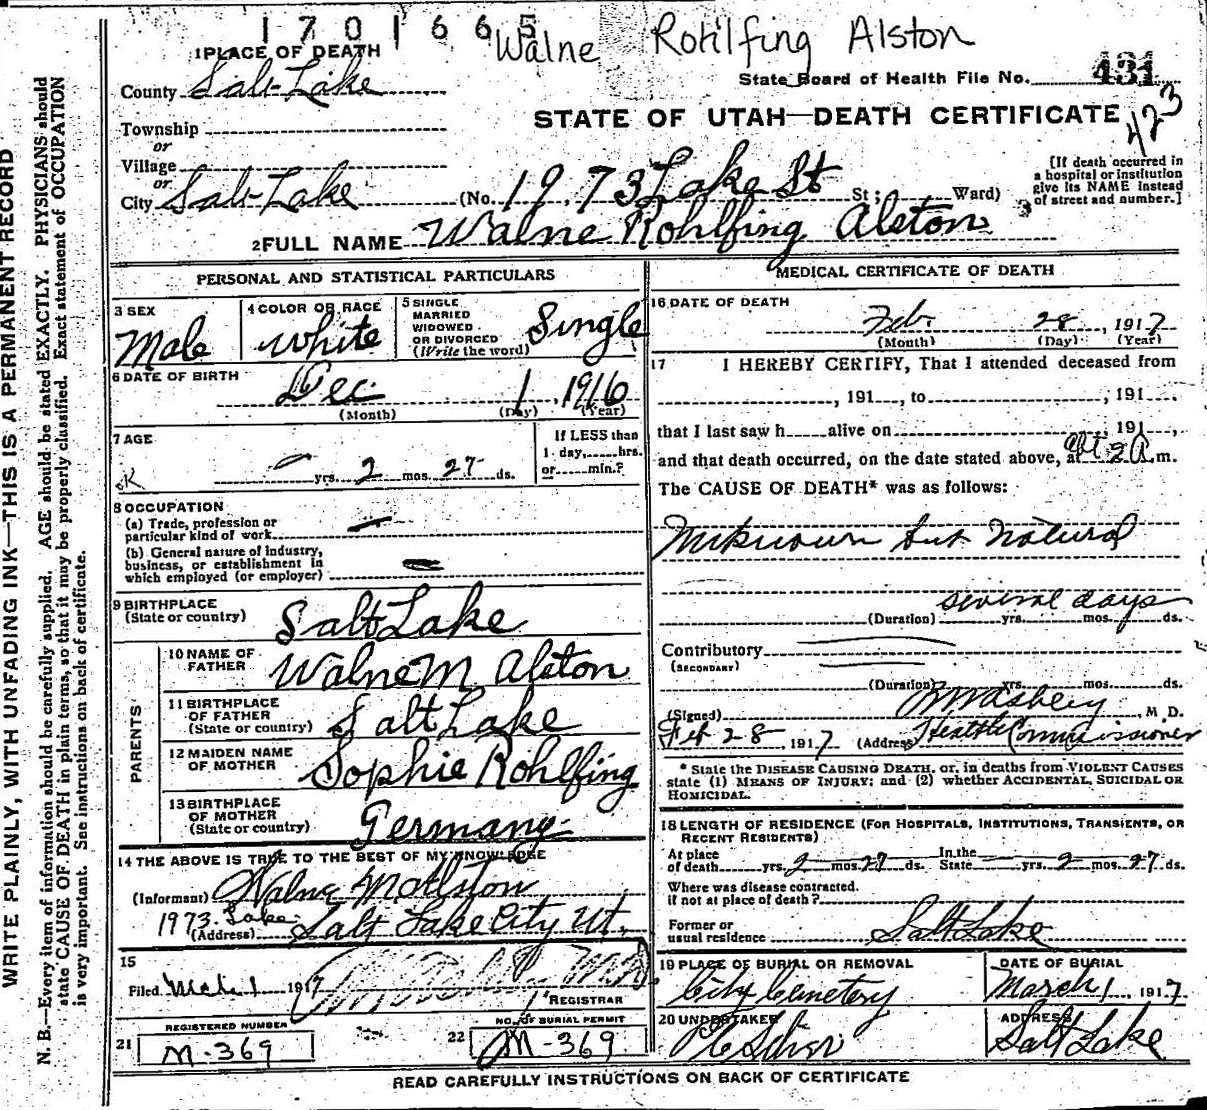 1701665
Walne Rohlfing Alston
1 PLACE OF DEATH
State Board of Health File No. 431
County Salt Lake
STATE OF UTAH—DEATH CERTIFICATE
423
Township
or
Village
or
City Salt Lake (No. 1973 Lake St St; Ward)
[If death occurred in
a hospital or institution
give its NAME instead
of street and number.]
2 FULL NAME Walne Rohlfing Alston
PERSONAL AND STATISTICAL PARTICULARS
3 SEX
Male
4 COLOR OR RACE
White
5 SINGLE
MARRIED
WIDOWED
OR DIVORCED
(Write the word)
Single
6 DATE OF BIRTH
Dec. 1 1916
(Month) (Day) (Year)
7 AGE
yrs. 2 mos. 27 ds.
If LESS than
1 day, hrs.
or min.?
8 OCCUPATION
(a) Trade, profession or
particular kind of work
(b) General nature of industry,
business, or establishment in
which employed (or employer)
9 BIRTHPLACE
(State or country)
Salt Lake
PARENTS
10 NAME OF
FATHER
Walne M Alston
11 BIRTHPLACE
OF FATHER
(State or country)
Salt Lake
12 MAIDEN NAME
OF MOTHER
Sophie Rohlfing
13 BIRTHPLACE
OF MOTHER
(State or country)
Germany
14 THE ABOVE IS TRUE TO THE BEST OF MY KNOWLEDGE
(Informant) Walne M Alston
1973 Lake
(Address) Salt Lake City Ut.
15
Filed Mch 1 1917
REGISTRAR
REGISTERED NUMBER
21 M-369
NO. OF BURIAL PERMIT
22 M-369
MEDICAL CERTIFICATE OF DEATH
16 DATE OF DEATH
Feb. 28, 1917
(Month) (Day) (Year)
17 I HEREBY CERTIFY, That I attended deceased from
, 191 , to , 191
that I last saw h alive on , 191 ,
and that death occurred, on the date stated above, at abt 2 A.m.
The CAUSE OF DEATH* was as follows:
Unknown but Natural
several days
(Duration) yrs. mos. ds.
Contributory
(SECONDARY)
(Duration) yrs. mos. ds.
(Signed) , M.D.
Feb 28, 1917 (Address) Health Commissioner
* State the DISEASE CAUSING DEATH, or, in deaths from VIOLENT CAUSES
state (1) MEANS OF INJURY; and (2) whether ACCIDENTAL, SUICIDAL OR
HOMICIDAL.
18 LENGTH OF RESIDENCE (FOR HOSPITALS, INSTITUTIONS, TRANSIENTS, OR
RECENT RESIDENTS)
At place
of death yrs. 2 mos. 27 ds. In the
State yrs. 2 mos. 27 ds.
Where was disease contracted.
if not at place of death?
Former or
usual residence Salt Lake
19 PLACE OF BURIAL OR REMOVAL
City Cemetery
DATE OF BURIAL
March 1 1917
20 UNDERTAKER
ADDRESS
Salt Lake
READ CAREFULLY INSTRUCTIONS ON BACK OF CERTIFICATE
WRITE PLAINLY, WITH UNFADING INK—THIS IS A PERMANENT RECORD
N. B.—Every item of information should be carefully supplied. AGE should be stated EXACTLY. PHYSICIANS should
state CAUSE OF DEATH in plain terms, so that it may be properly classified. Exact statement of OCCUPATION
is very important. See instructions on back of certificate.